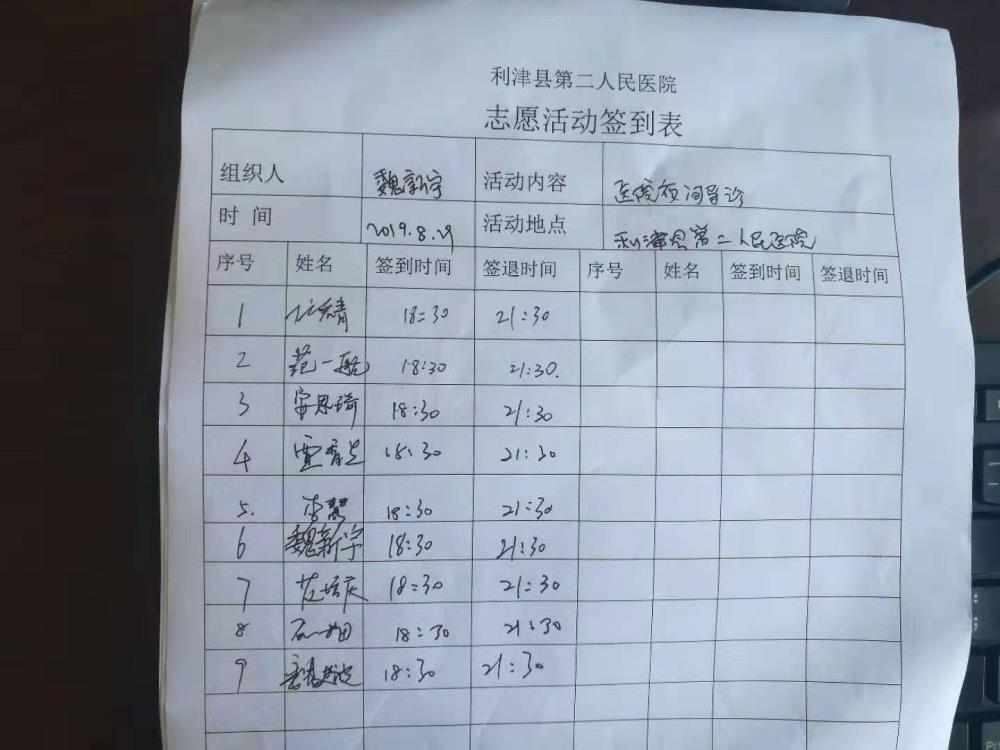 利津县第二人民医院
志愿活动签到表
组织人 魏新宇 活动内容 医院夜间导诊
时 间 2019.8.29 活动地点 利津县第二人民医院
序号 姓名 签到时间 签退时间 序号 姓名 签到时间 签退时间
1 18:30 21:30
2 范一航 18:30 21:30.
3 安思琦 18:30 21:30
4 18:30 21:30
5. 李慧 18:30 21:30
6 魏新宇 18:30 21:30
7 18:30 21:30
8 18:30 21:30
9 18:30 21:30